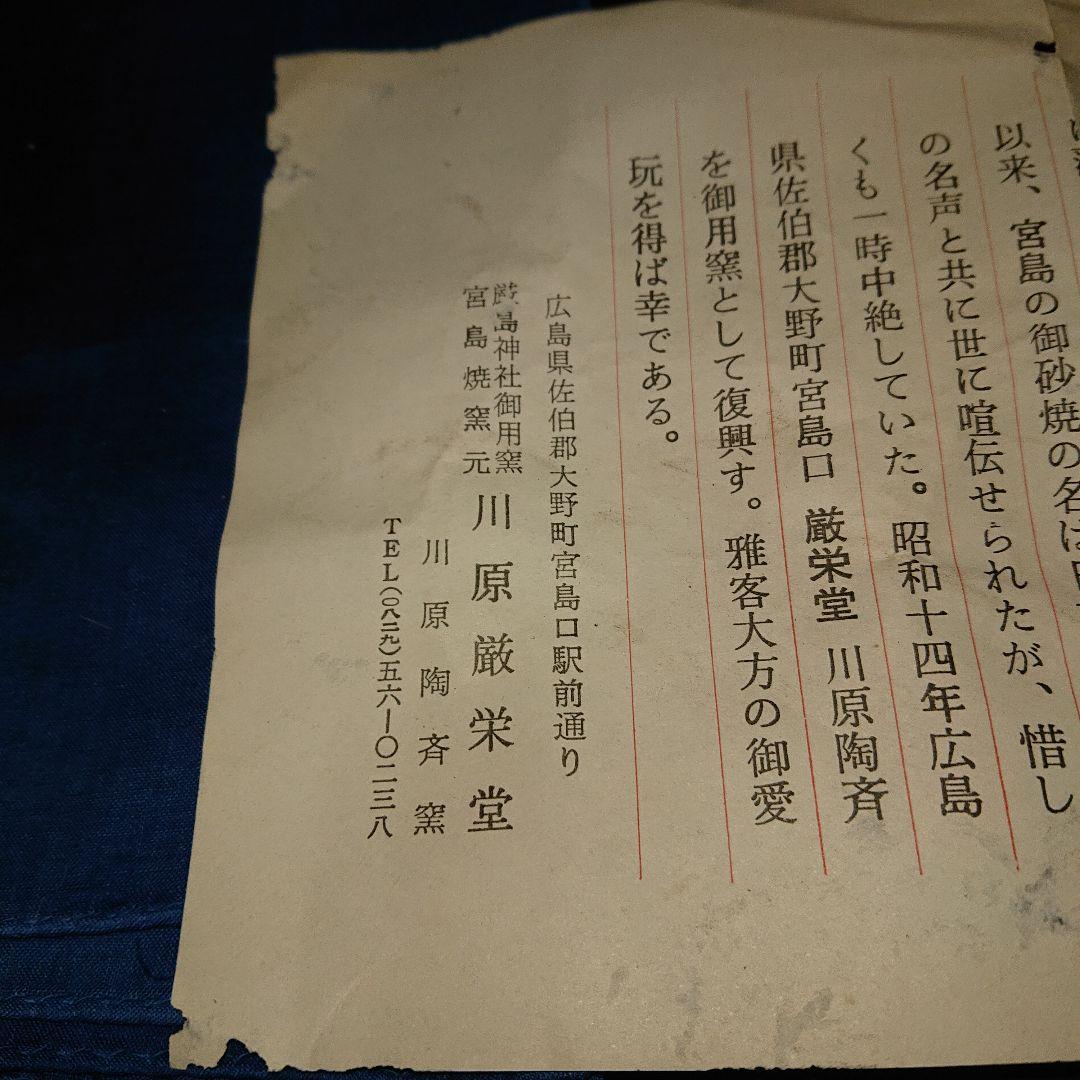 以来、宮島の御砂焼の名は
の名声と共に世に喧伝せられたが、惜し
くも一時中絶していた。昭和十四年広島
県佐伯郡大野町宮島口 厳栄堂 川原陶斉
を御用窯として復興す。雅客大方の御愛
玩を得ば幸である。
広島県佐伯郡大野町宮島口駅前通り
厳島神社御用窯
宮島焼窯元 川原厳栄堂
川原陶斉窯
TEL(〇八二九)五六―〇二三八